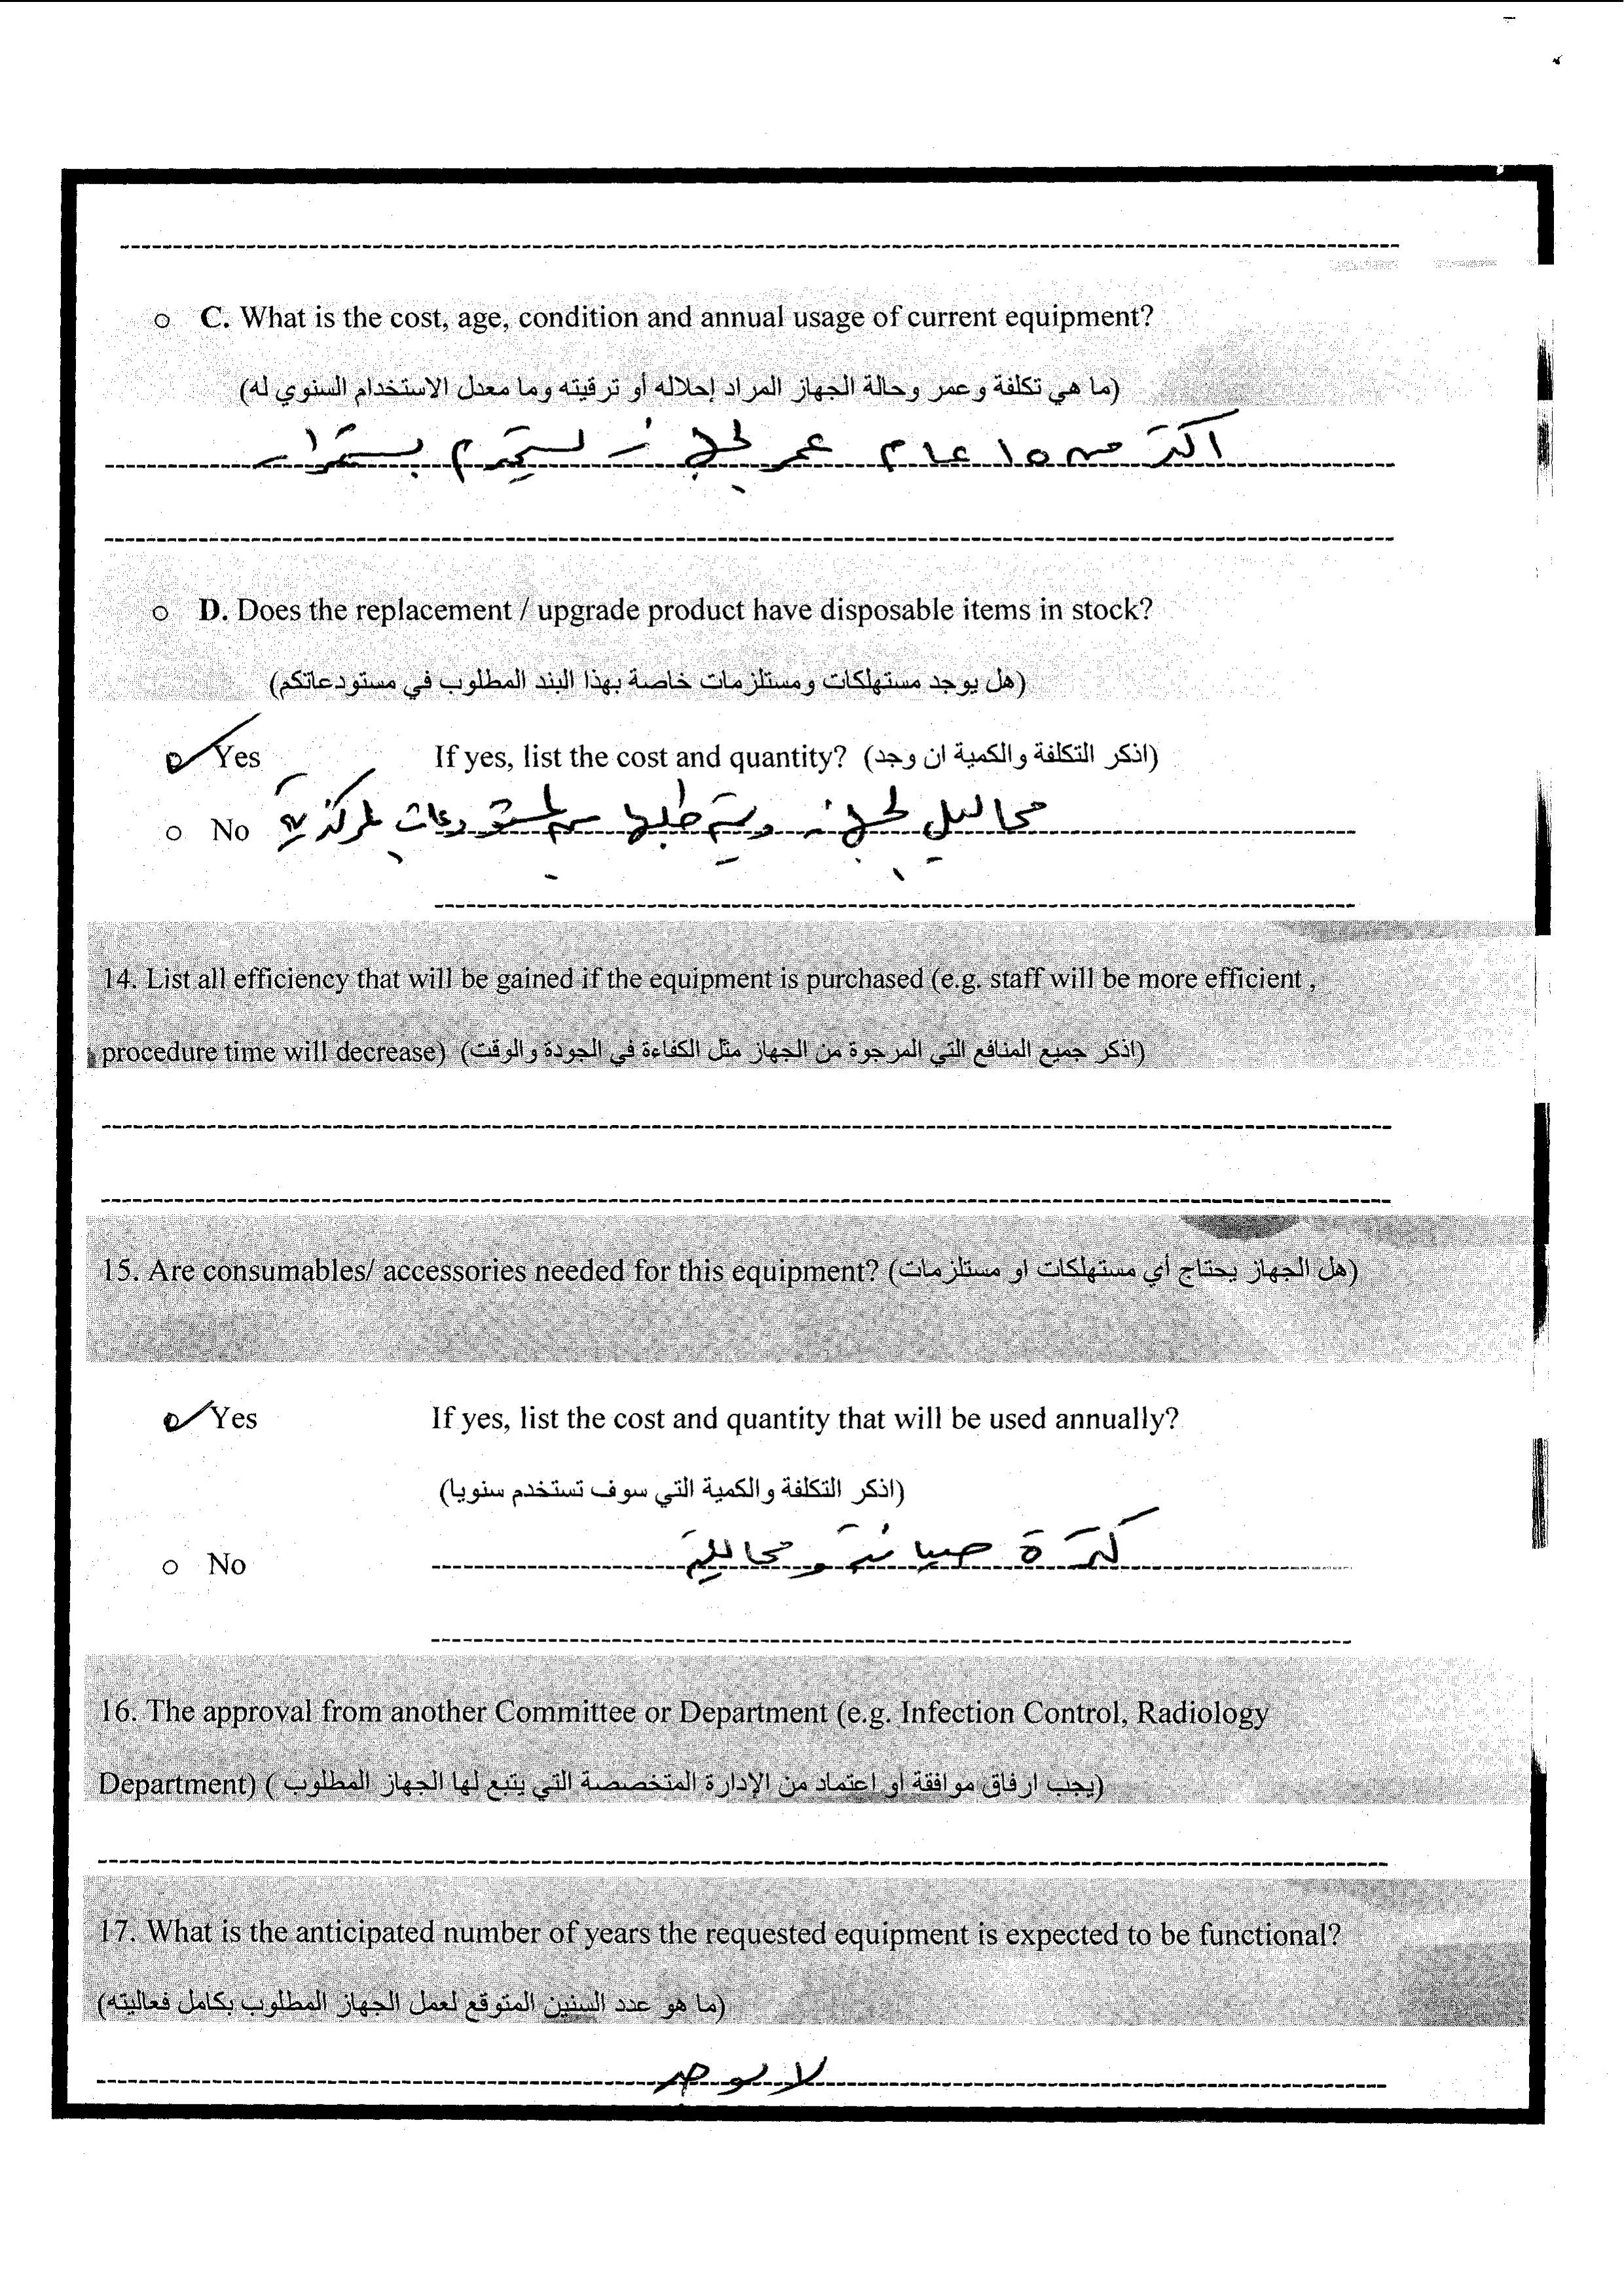 ○ C. What is the cost, age, condition and annual usage of current equipment?
(ما هي تكلفة وعمر وحالة الجهاز المراد إحلاله أو ترقيته وما معدل الاستخدام السنوي له)
اكثر من ١٥ عام عمر الجهاز يستخدم باستمرار
○ D. Does the replacement / upgrade product have disposable items in stock?
(هل يوجد مستهلكات ومستلزمات خاصة بهذا البند المطلوب في مستودعاتكم)
Yes If yes, list the cost and quantity? (اذكر التكلفة والكمية ان وجد)
○ No محاليل الجهاز ويتم طلبها من المستودعات المركزية
14. List all efficiency that will be gained if the equipment is purchased (e.g. staff will be more efficient ,
procedure time will decrease) (اذكر جميع المنافع التي المرجوة من الجهاز مثل الكفاءة في الجودة والوقت)
15. Are consumables/ accessories needed for this equipment? (هل الجهاز يحتاج أي مستهلكات او مستلزمات)
Yes If yes, list the cost and quantity that will be used annually?
(اذكر التكلفة والكمية التي سوف تستخدم سنويا)
○ No صيانة و
16. The approval from another Committee or Department (e.g. Infection Control, Radiology
Department) (يجب ارفاق موافقة او اعتماد من الإدارة المتخصصة التي يتبع لها الجهاز المطلوب)
17. What is the anticipated number of years the requested equipment is expected to be functional?
(ما هو عدد السنين المتوقع لعمل الجهاز المطلوب بكامل فعاليته)
لا يوجد